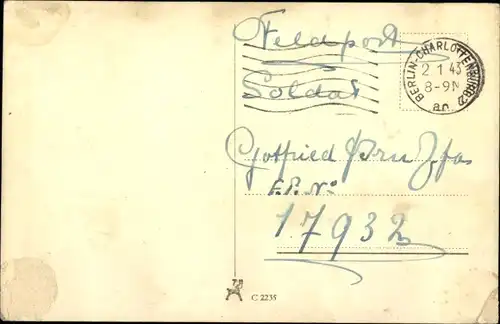 Feldpost
Soldat
BERLIN-CHARLOTTENBURG 2
2 1 43
8-9N
an
Gotfried
F.P. No
17932
C 2235